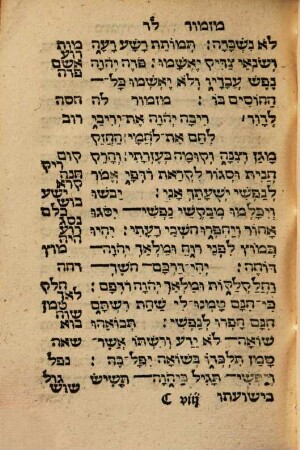 מזמור לד
לא נשברה׃ תמותת רשע רעה מות
ושנאי צדיק יאשמו׃ פדה יהוה אשם
נפש עבדיו ולא יאשמו כל— פדה
החוסים בו׃ מזמור לה חסה
לדוד׃ ריבה יהוה את־יריבי רוב
לחם את־לחמי׃ החזק
מגן וצנה וקומה בעזרתי׃ והרק קום
חנית וסגור לקראת רדפי אמר ריק
לנפשי ישעתך אני׃ יבשו
ויכלמו מבקשי נפשי— יסגו כלם
אחור ויחפרו חשבי רעתי׃ יהיו
כמוץ לפני רוח ומלאך יהוה— מוץ
דוחה׃ יהי־דרכם— חשך— דחה
וחלקלקות ומלאך יהוה רדפם׃ חלק
כי־חנם טמנו־לי שחת רשתם טמן
חנם חפרו לנפשי׃ תבואהו בוא
שואה— לא ידע ורשתו אשר־ שאה
טמן תלכדו בשואה יפל־בה׃ נפל
ונפשי— תגיל ביהוה— תשיש גול
בישועתו שוש
C viij